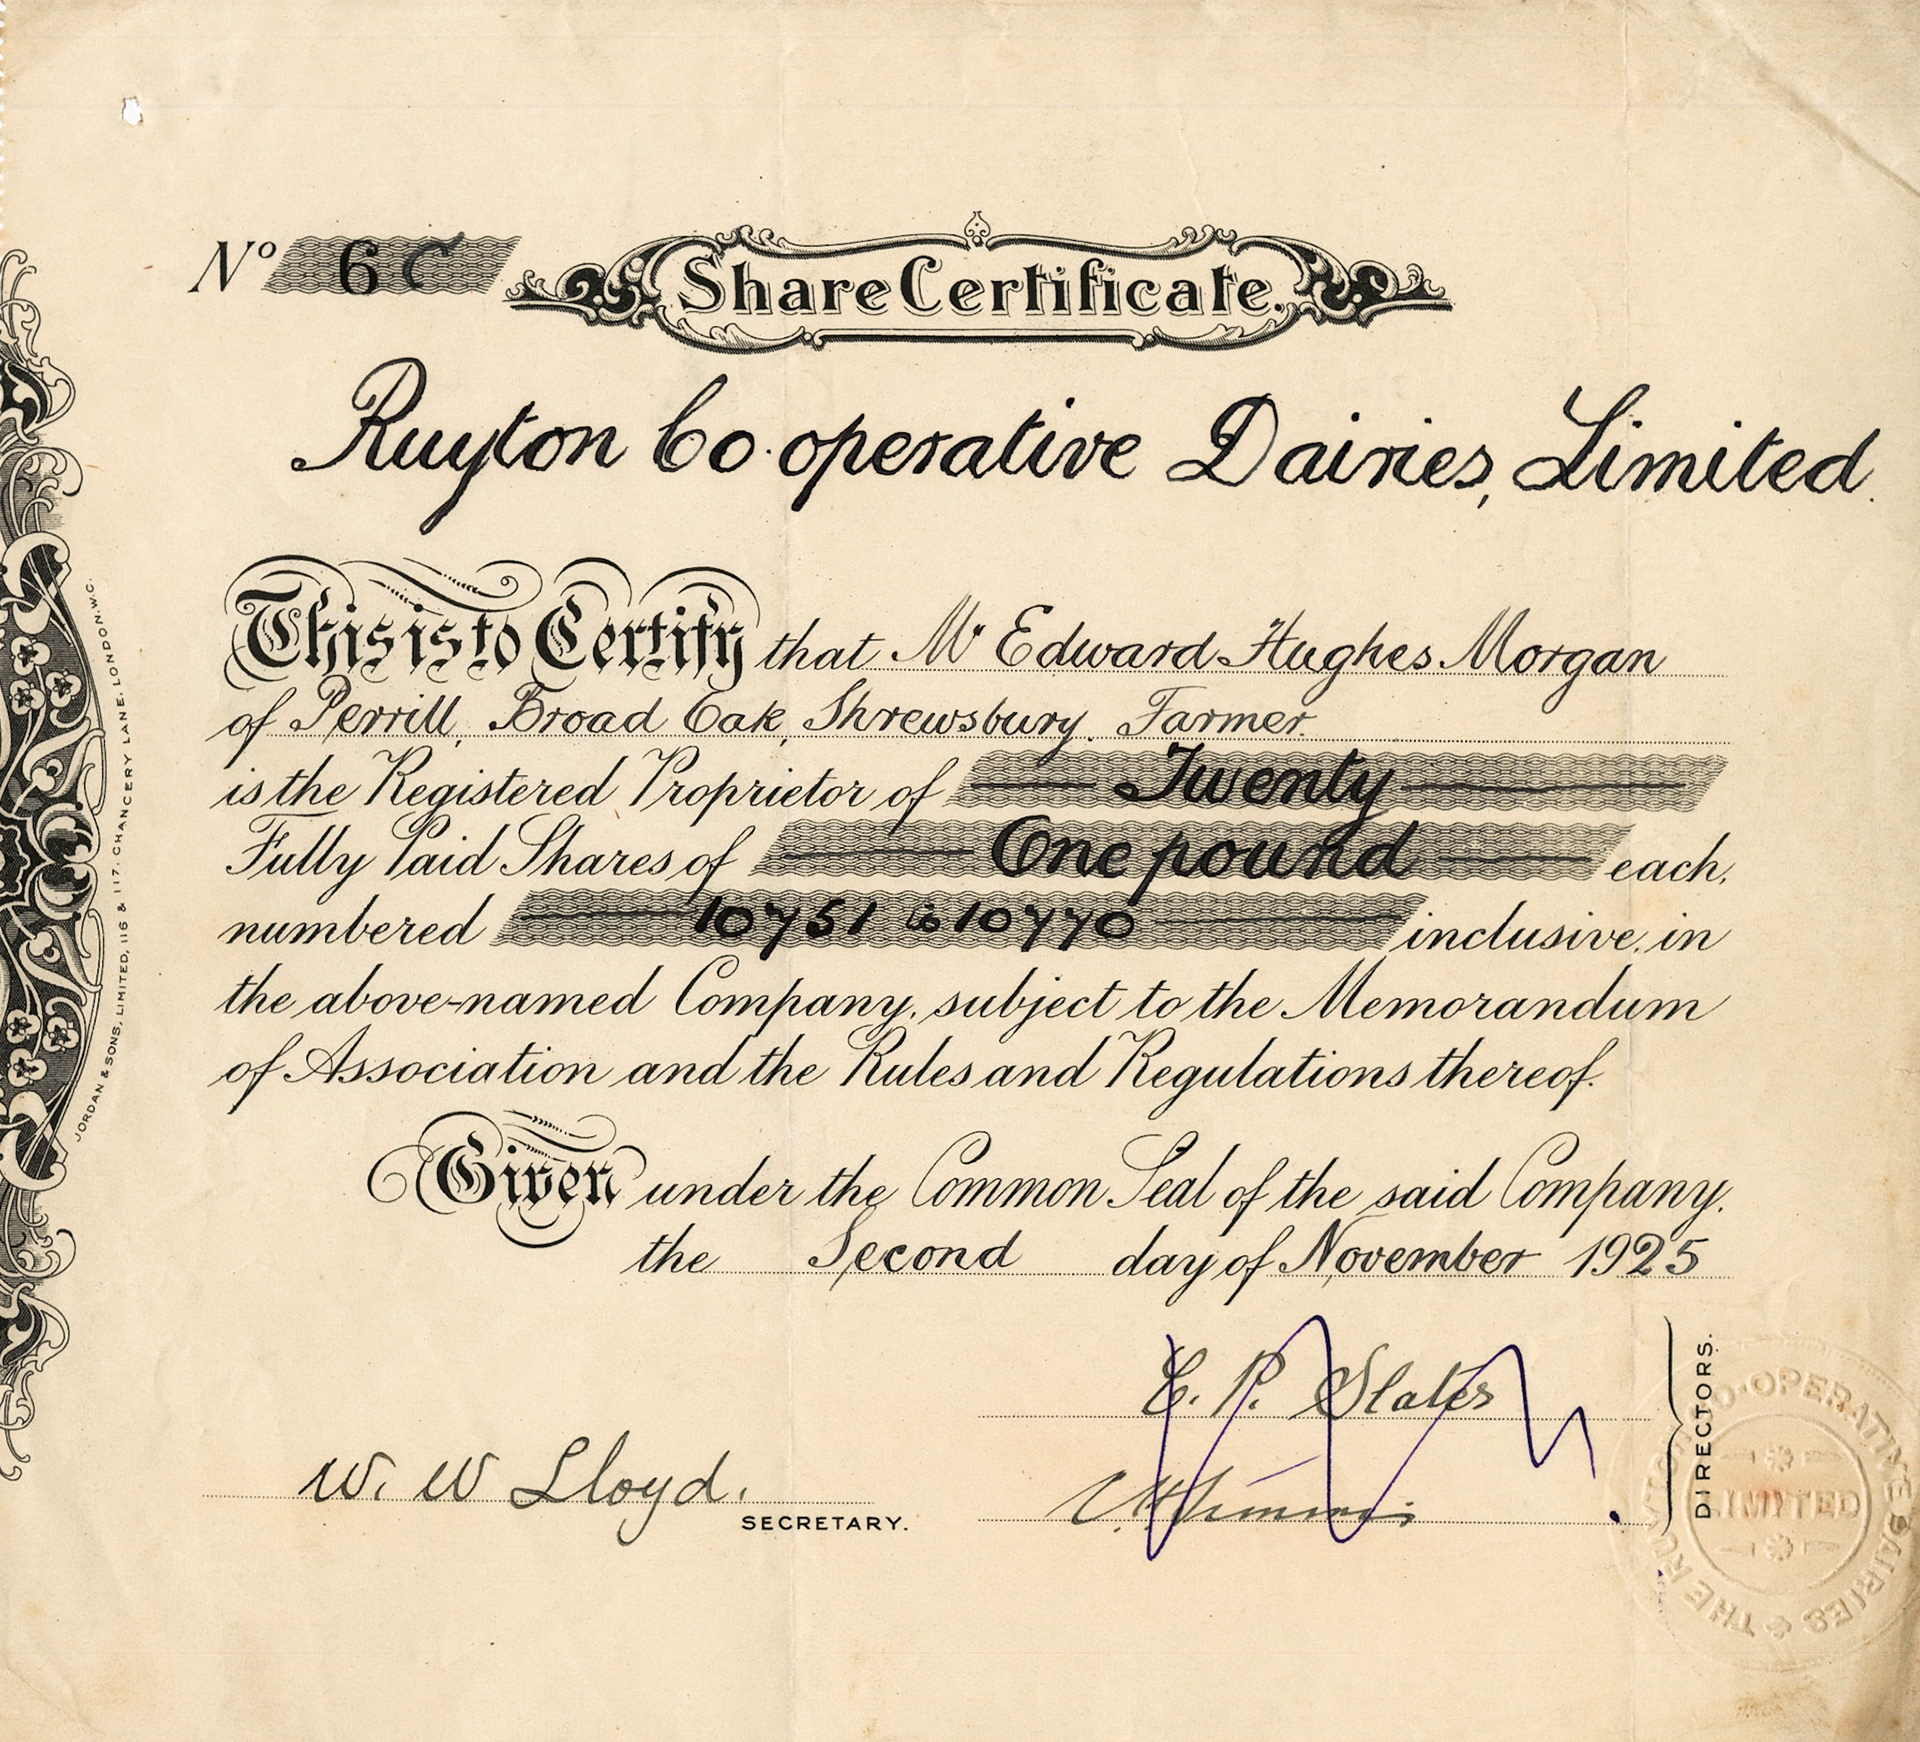 No 6C
Share Certificate.
Ruyton Co-operative Dairies, Limited.
This is to Certify that Mr Edward Hughes Morgan
of Perrill, Broad Oak, Shrewsbury. Farmer.
is the Registered Proprietor of Twenty
Fully Paid Shares of One pound each,
numbered 10751 to 10770 inclusive, in
the above-named Company, subject to the Memorandum
of Association and the Rules and Regulations thereof.
Given under the Common Seal of the said Company,
the Second day of November 1925
E. P. Slater
DIRECTORS.
W. W Lloyd.
SECRETARY.
JORDAN & SONS, LIMITED, 116 & 117, CHANCERY LANE, LONDON, W.C.
THE RUYTON CO-OPERATIVE DAIRIES
LIMITED